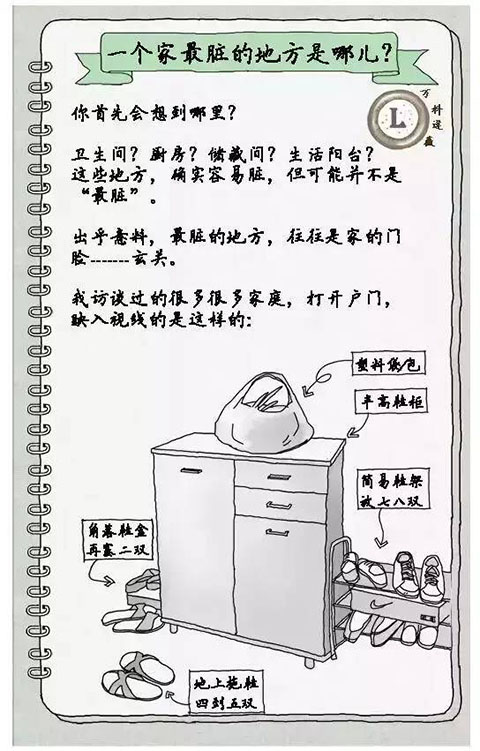 一个家最脏的地方是哪儿?
你首先会想到哪里?
L
万科逯薇
卫生间? 厨房? 储藏间? 生活阳台?
这些地方, 确实容易脏, 但可能并不是
“最脏”。
出乎意料, 最脏的地方, 往往是家的门
脸-------玄关。
我访谈过的很多很多家庭, 打开户门,
映入视线的是这样的:
塑料袋包
半高鞋柜
简易鞋架
放七八双
角落鞋盒
再塞二双
地上拖鞋
四到五双